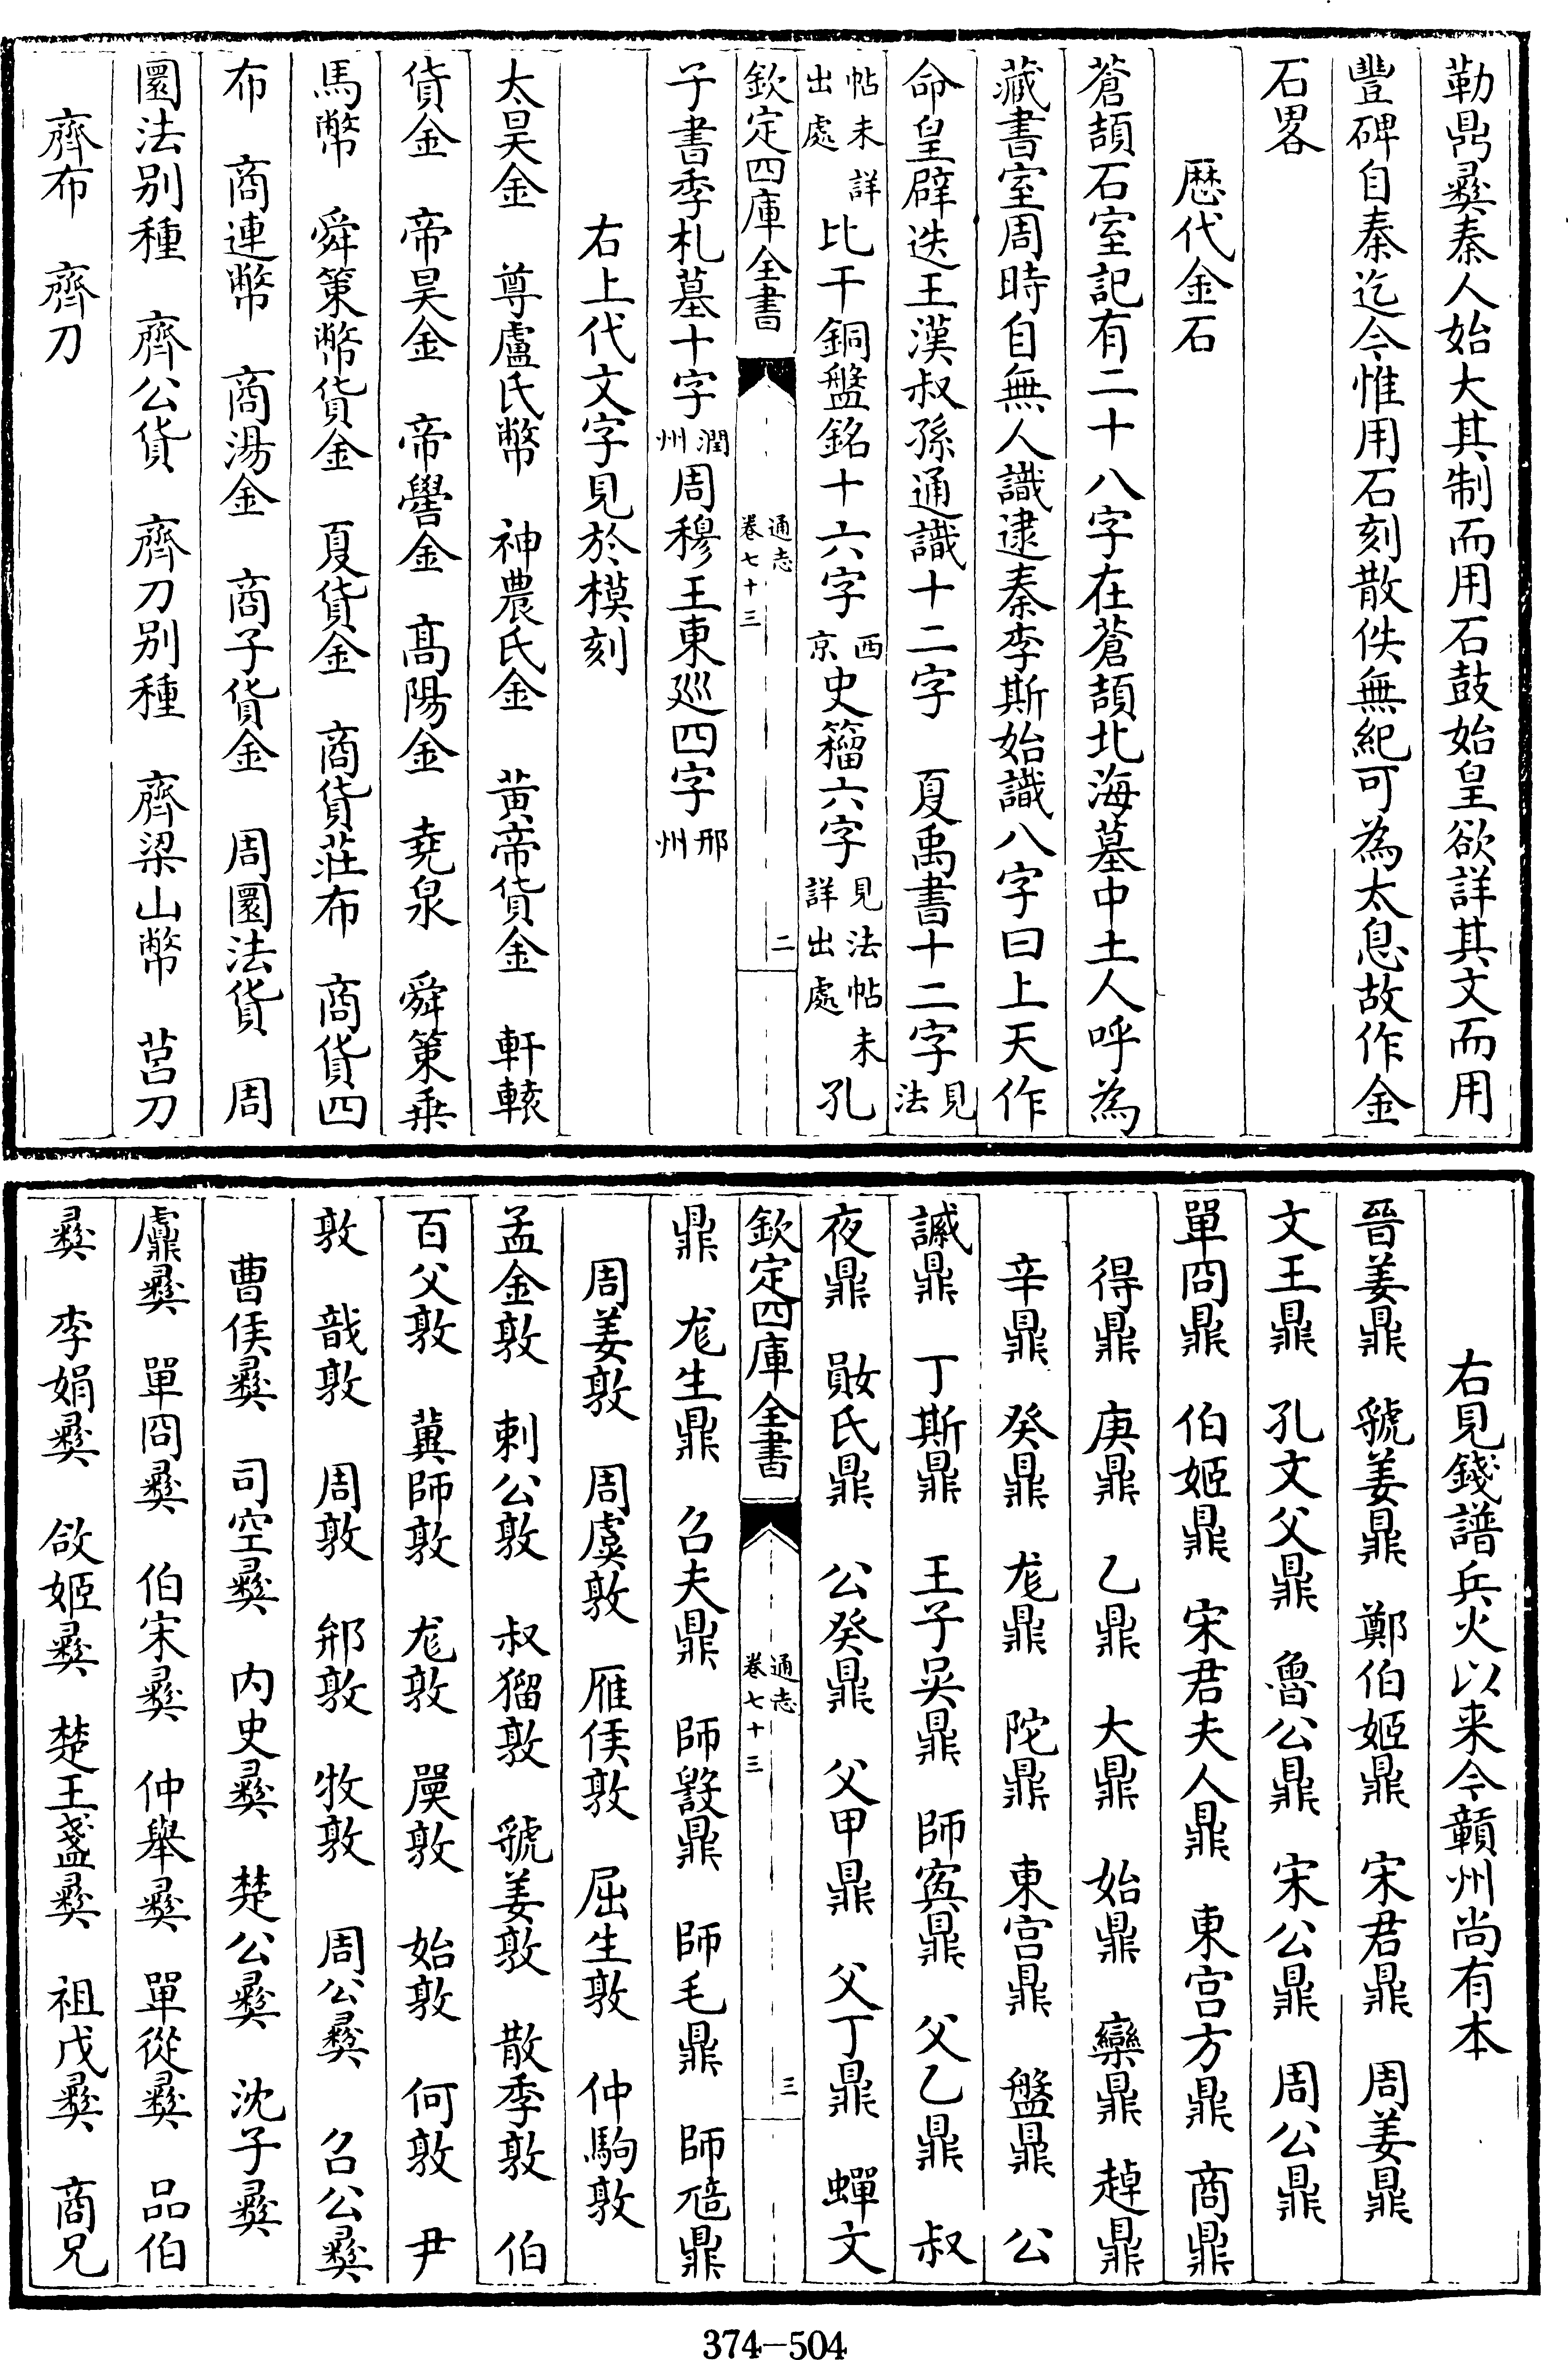 勒鼎彞秦人始大其制而用石鼓始皇欲詳其文而用
豐碑自秦迄今惟用石刻散佚無紀可為太息故作金
石畧
歴代金石
蒼頡石室記有二十八字在蒼頡北海墓中土人呼為
藏書室周時自無人識逮秦李斯始識八字曰上天作
命皇辟迭王漢叔孫通識十二字　夏禹書十二字見法
帖未詳出處比干銅盤銘十六字西京史籀六字見法帖未詳出處孔
欽定四庫全書　通志卷七十三　二
子書季札墓十字潤州周穆王東廵四字邢州
右上代文字見於模刻
太昊金　尊盧氏幣　神農氏金　黄帝貨金　軒轅
貨金　帝昊金　帝嚳金　髙陽金　堯泉　舜策乗
馬幣　舜策幣貨金　夏貨金　商貨莊布　商貨四
布　商連幣　商湯金　商子貨金　周圜法貨　周
圜法别種　齊公貨　齊刀别種　齊梁山幣　莒刀
齊布　齊刀
右見錢譜兵火以来今贑州尚有本
晉姜鼎　虢姜鼎　鄭伯姬鼎　宋君鼎　周姜鼎
文王鼎　孔文父鼎　魯公鼎　宋公鼎　周公鼎
單冏鼎　伯姬鼎　宋君夫人鼎　東宫方鼎　商鼎
得鼎　庚鼎　乙鼎　大鼎　始鼎　欒鼎　趠鼎
辛鼎　癸鼎　尨鼎　陀鼎　東宫鼎　盤鼎　公
諴鼎　丁斯鼎　王子吳鼎　師寏鼎　父乙鼎　叔
夜鼎　䢵氏鼎　公癸鼎　父甲鼎　父丁鼎　蟬文
欽定四庫全書　通志卷七十三　三
鼎　尨生鼎　召夫鼎　師㝨鼎　師毛鼎　師㝬鼎
周姜敦　周虞敦　雁侯敦　屈生敦　仲駒敦
孟金敦　剌公敦　叔㺅敦　虢姜敦　散季敦　伯
百父敦　冀師敦　尨敦　㒼敦　始敦　何敦　尹
敦　戠敦　周敦　䢵敦　牧敦　周公彞　召公彞
曹侯彞　司空彞　内史彞　楚公彞　沈子彞
彞　單冏彞　伯宋彞　仲舉彞　單從彞　品伯
彞　李娟彞　㰸姬彞　楚王盞彞　祖戊彞　商兄
374-504